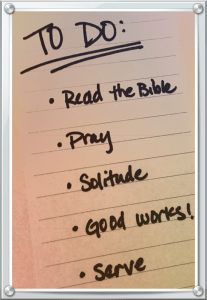 TO DO:
• Read the Bible
• Pray
• Solitude
• Good works!
• Serve